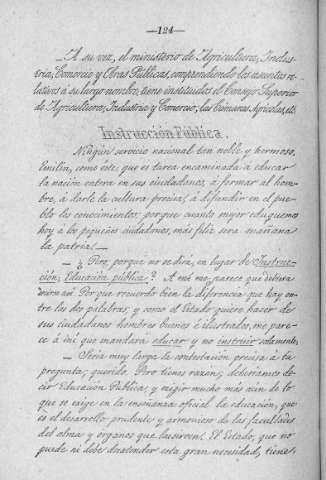 —124—
A su vez, el ministerio de Agricultura, Indus-
tria, Comercio y Obras Públicas, comprendiendo los asuntos re-
lativos á su largo nombre, tiene instituidos el Consejo Superior
de Agricultura, Industria y Comercio; las Cámaras Agrícolas, etc.
Instrucción Pública.
Ningún servicio nacional tan noble y hermoso,
Emilín, como éste; que es tarea encaminada á educar
la nación entera en sus ciudadanos, á formar al hom-
bre, á darle la cultura precisa, á difundir en el pue-
blo los conocimientos; porque cuanto mejor eduquemos
hoy á los pequeños ciudadanos, más feliz será mañana
la patria.—
—¿Pero, porqué no se dirá, en lugar de Instruc-
ción, Educación pública? A mí me parece que debiera
decirse así. Porque recuerdo bien la diferencia que hay en-
tre las dos palabras, y como el Estado quiere hacer de
sus ciudadanos hombres buenos é ilustrados, me pare-
ce á mí que mandará educar y no instruir solamente.
—Sería muy larga la contestación precisa á tu
pregunta, querida. Pero tienes razón; deberíamos de-
cir Educación Pública, y exigir mucho más aún de lo
que se exige en la enseñanza oficial la educación, que
es el desarrollo prudente y armonioso de las facultades
del alma y órganos que las sirven. El Estado, que no
puede ni debe desatender esta gran necesidad, tiene